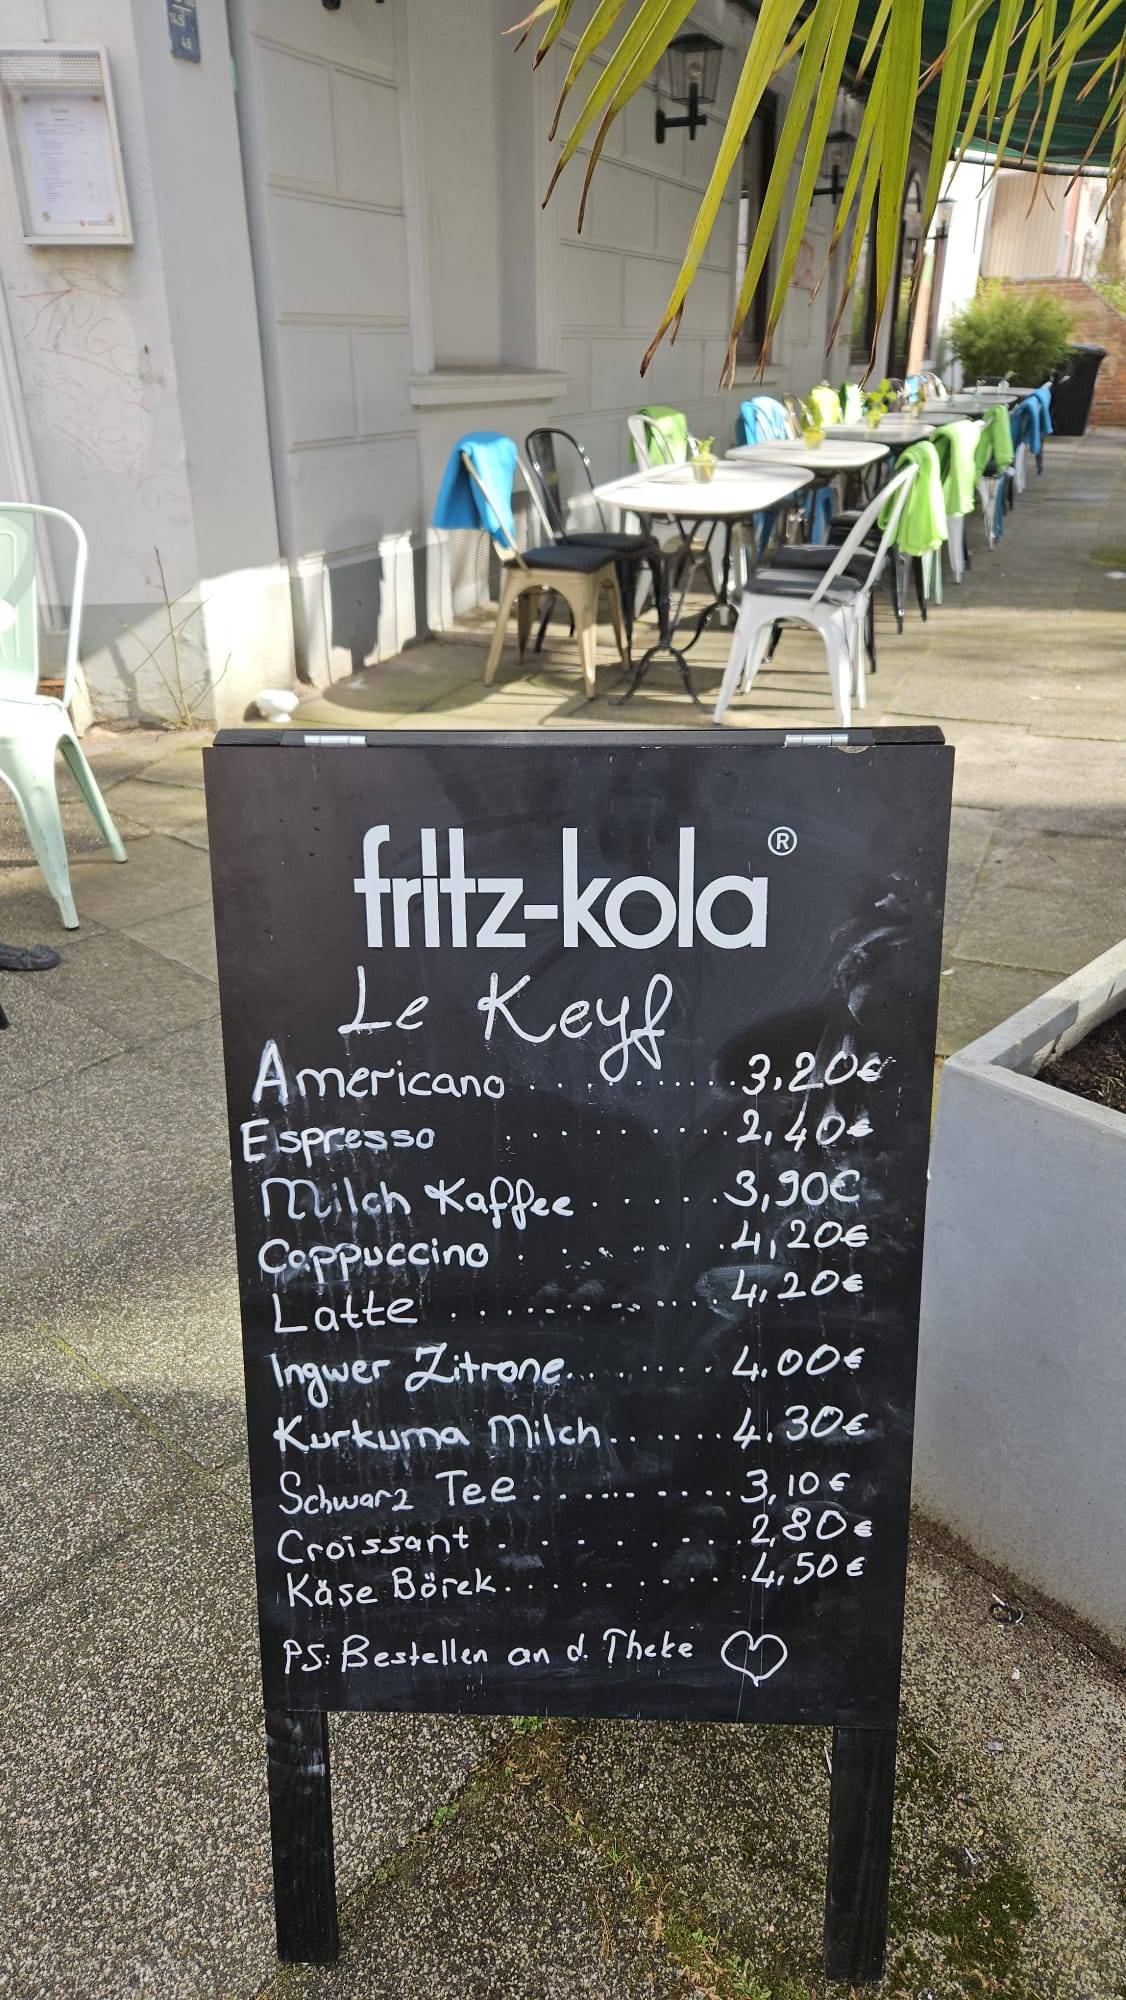 fritz-kola®
Le Keyf
Americano . . . . . . . . . . 3,20€
Espresso . . . . . . . . . 2,40€
Milch Kaffee . . . . . . 3,90€
Cappuccino . . . . . . . . 4,20€
Latte . . . . . . . . . . . . . 4,20€
Ingwer Zitrone . . . . . . . . 4,00€
Kurkuma Milch . . . . . . . 4,30€
Schwarz Tee . . . . . . . . . . 3,10€
Croissant . . . . . . . . . 2,80€
Käse Börek . . . . . . . . . . 4,50€
PS: Bestellen an d. Theke